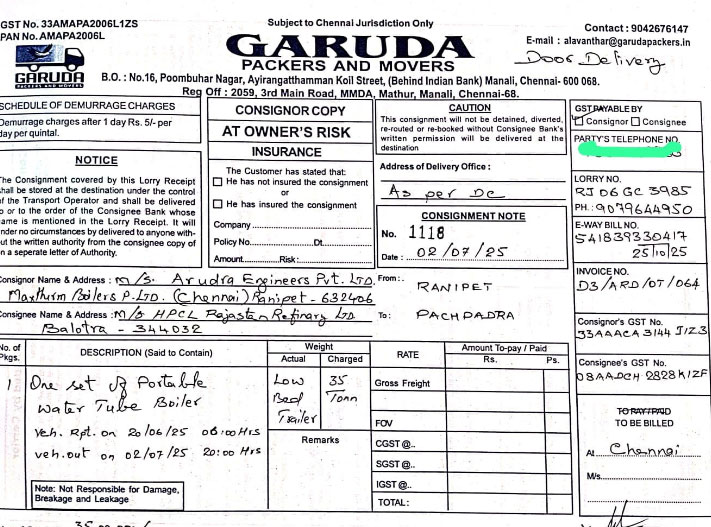 GST No. 33AMAPA2006L1ZS
PAN No. AMAPA2006L
Subject to Chennai Jurisdiction Only
Contact : 9042676147
E-mail : alavanthar@garudapackers.in
GARUDA
PACKERS AND MOVERS
Door Delivery
GARUDA
PACKERS AND MOVERS
B.O. : No.16, Poombuhar Nagar, Ayirangatthamman Koil Street, (Behind Indian Bank) Manali, Chennai- 600 068.
Reg Off : 2059, 3rd Main Road, MMDA, Mathur, Manali, Chennai-68.
SCHEDULE OF DEMURRAGE CHARGES
Demurrage charges after 1 day Rs. 5/- per
day per quintal.
NOTICE
The Consignment covered by this Lorry Receipt
shall be stored at the destination under the control
of the Transport Operator and shall be delivered
to or to the order of the Consignee Bank whose
name is mentioned in the Lorry Receipt. It will
under no circumstances by delivered to anyone with-
out the written authority from the consignee copy of
on a seperate letter of Authority.
CONSIGNOR COPY
AT OWNER'S RISK
INSURANCE
The Customer has stated that:
He has not insured the consignment
or
He has not insured the consignment
Company
Policy No. Dt.
Amount Risk:
CAUTION
This consignment will not be detained, diverted,
re-routed or re-booked without Consignee Bank's
written permission will be delivered at the
destination
Address of Delivery Office :
As per DC
CONSIGNMENT NOTE
No. 1118
Date : 02/07/25
GST PAYABLE BY
Consignor Consignee
PARTY'S TELEPHONE NO.
LORRY NO.
RJ 06 GC 3985
PH.: 9079644950
E-WAY BILL NO.
541839330417
25/10/25
INVOICE NO.
D3/ARD/OT/064
Consignor's GST No.
33AAACA 3144 J1Z3
Consignee's GST No.
08AADCH 2828K1ZF
TO PAY/PAID
TO BE BILLED
At Chennai
M/s.
Consignor Name & Address : M/s. Arudra Engineers Pvt. LTD.
Maxtherm Boilers P.LTD. (Chennai) Ranipet - 632406
Consignee Name & Address : M/s HPCL Rajastan Refinary LTD
Balotra - 344032
From : RANIPET
To : PACHPADRA
No. of
Pkgs.
DESCRIPTION (Said to Contain)
Weight
Actual Charged
RATE
Amount To-pay / Paid
Rs. Ps.
1 One set of Portable
Water Tube Boiler
Veh. Rpt. on 20/06/25 06:00 Hrs
Veh. out on 02/07/25 20:00 Hrs
Low
Bed
Trailer
35
Tonn
Remarks
Gross Freight
FOV
CGST @..
SGST @..
IGST @..
TOTAL:
Note: Not Responsible for Damage,
Breakage and Leakage